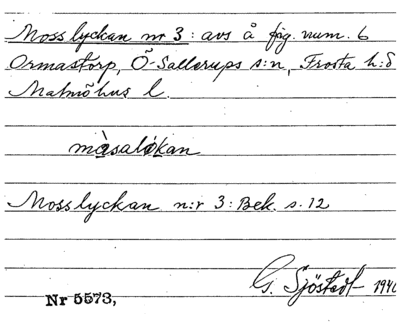 Mosslyckan nr 3: avs å fig. num. 6
Ormastorp, Ö-Sallerups s:n, Frosta h:d
Malmöhus l.
màsalǿkan
Mosslyckan n:r 3: Bek. s. 12
G. Sjöstedt 194
Nr 5573,